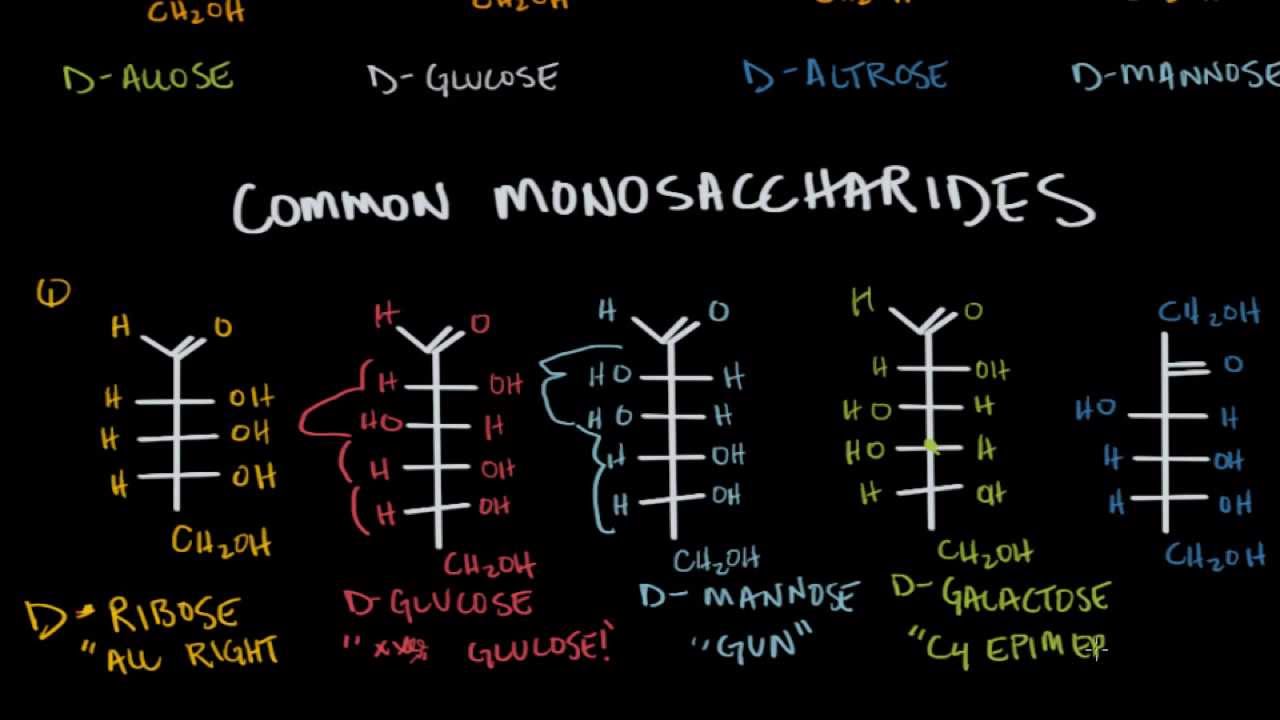 CH2OH CH2OH
D-ALLOSE D-GLUCOSE D-ALTROSE D-MANNOSE
COMMON MONOSACCHARIDES
1
H O H O H O H O CH2OH
H OH H OH HO H H OH O
H OH HO H HO H HO H HO H
H OH H OH H OH HO H H OH
CH2OH H OH H OH H OH H OH
CH2OH CH2OH CH2OH CH2OH
D-RIBOSE D-GLUCOSE D-MANNOSE D-GALACTOSE
"ALL RIGHT GLUCOSE!" "GUN" "C4 EPIMER